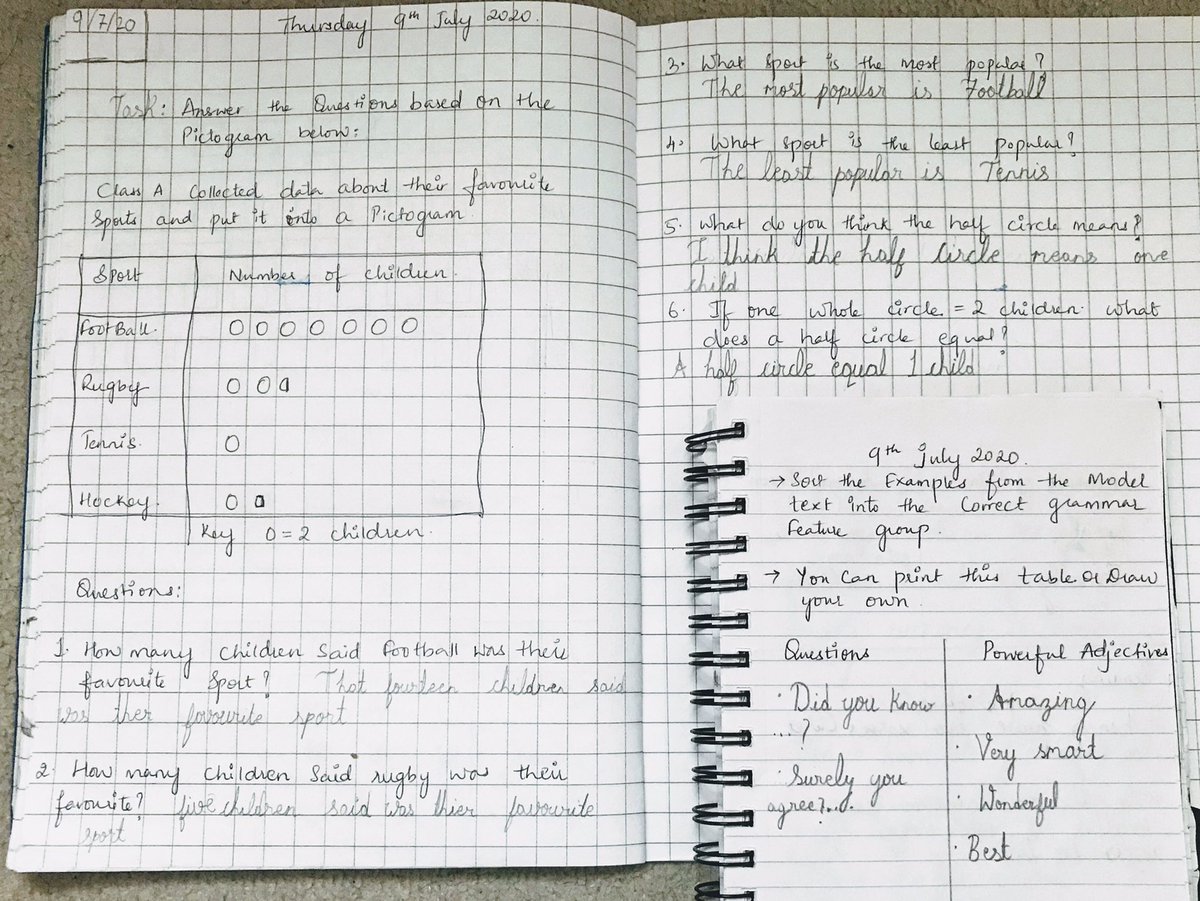 9/7/20
Thursday 9th July 2020.
Task: Answer the Questions based on the
Pictogram below:
Class A collected data about their favourite
Sports and put it into a Pictogram
Sport Number of children.
FootBall. O O O O O O O
Rugby O O
Tennis. O
Hockey. O
Key O = 2 children.
Questions:
1. How many children said football was their
favourite sport? That fourteen children said
was ther favourite sport
2. How many children said rugby was their
favourite? five children said was thier favourite
sport
3. What sport is the most popular?
The most popular is Football
4. What sport is the least popular?
The least popular is Tennis
5. What do you think the half circle means?
I think the half circle means one
child
6. If one whole circle = 2 children. what
does a half circle equal?
A half circle equal 1 child
9th July 2020.
→ Sort the Examples from the Model
text into the Correct grammar
feature group.
→ You can print this table or Draw
your own.
Questions Powerful Adjectives
· Did you know · Amazing
...?
· Very smart
· Surely you
agree?...
· Wonderful
· Best